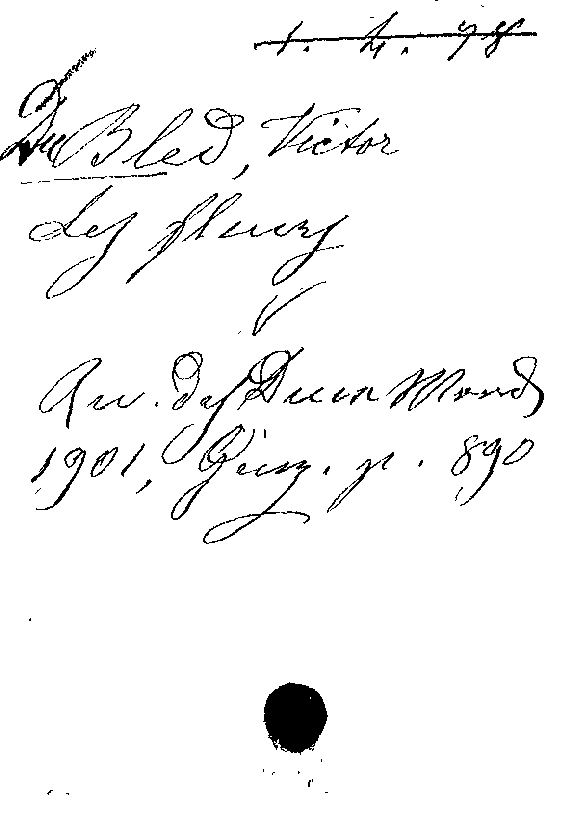 1. 4. 78
Du Bled, Victor
Les fleurs
Rev. des Deux Mondes
1901, p. 890